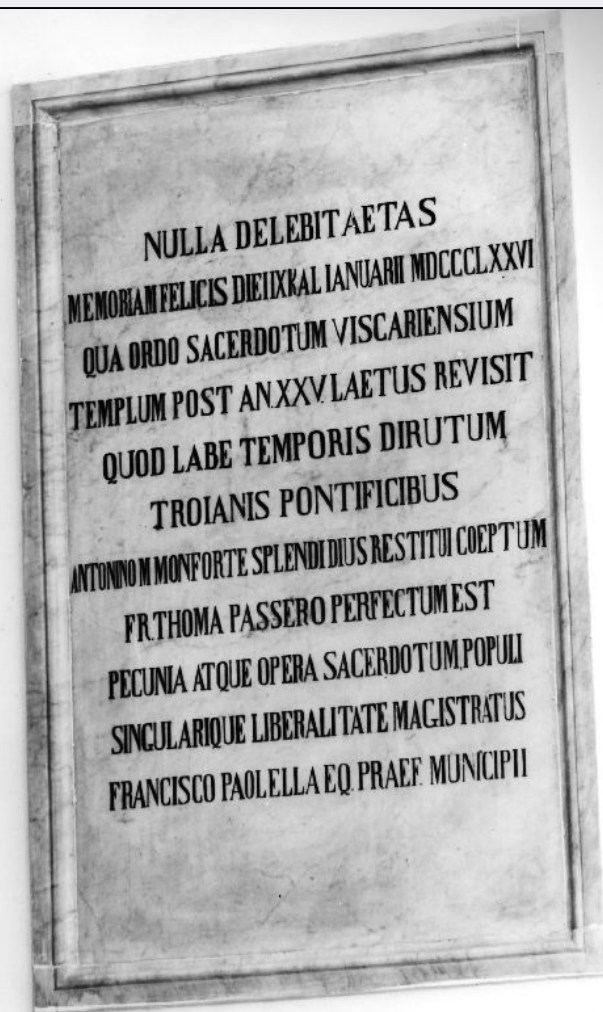 NULLA DELEBIT AETAS
MEMORIAM FELICIS DIEI IXKAL IANUARII MDCCCLXXVI
QUA ORDO SACERDOTUM VISCARIENSIUM
TEMPLUM POST AN.XXV. LAETUS REVISIT
QUOD LABE TEMPORIS DIRUTUM
TROIANIS PONTIFICIBUS
ANTONINO M MONFORTE SPLENDIDIUS RESTITUI COEPTUM
FR.THOMA PASSERO PERFECTUM EST
PECUNIA ATQUE OPERA SACERDOTUM,POPULI
SINGULARIQUE LIBERALITATE MAGISTRATUS
FRANCISCO PAOLELLA EQ. PRAEF. MUNICIPII